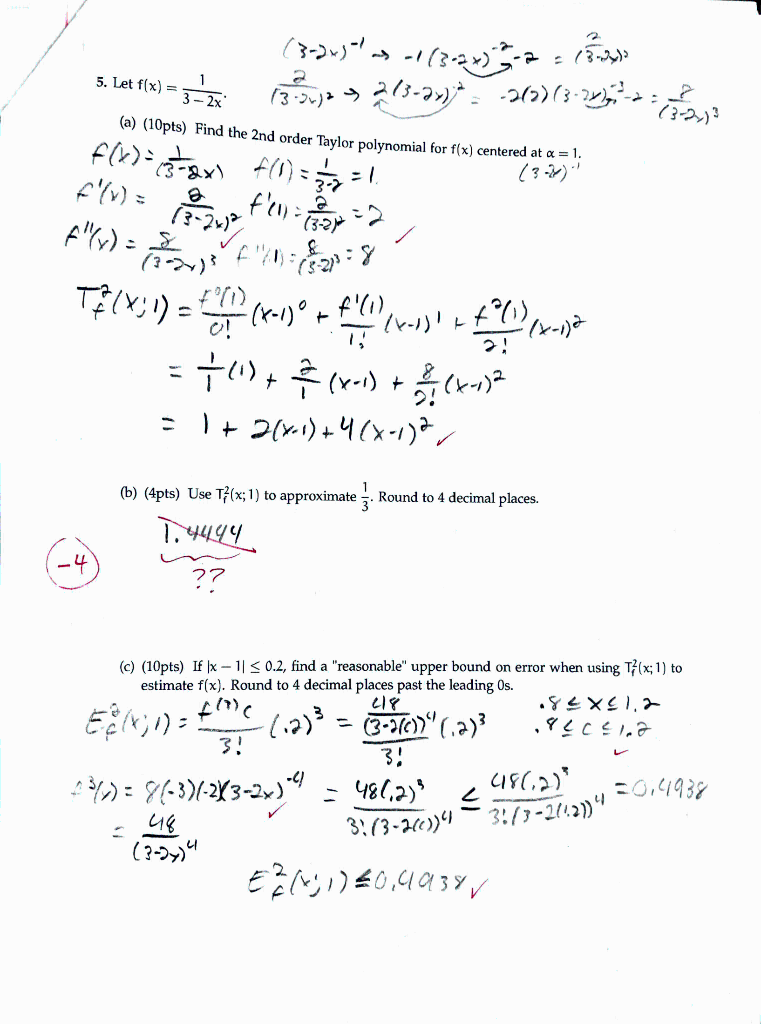 (3-2x)⁻¹ → -1(3-2x)⁻²·-2 = 2/(3-2x)²
5. Let f(x) = 1/(3 − 2x).
2/(3-2x)² → 2(3-2x)⁻² = -2(2)(3-2x)⁻³·-2 = 8/(3-2x)³
(a) (10pts) Find the 2nd order Taylor polynomial for f(x) centered at α = 1.
f(x) = 1/(3-2x) f(1) = 1/(3-2) = 1. (3-2x)⁻¹
f'(x) = 2/(3-2x)² f'(1) = 2/(3-2)² = 2
f''(x) = 8/(3-2x)³ ✓ f''(1) = 8/(3-2)³ = 8 ✓
T²f(x; 1) = f⁰(1)/0! (x-1)⁰ + f'(1)/1! (x-1)¹ + f²(1)/2! (x-1)²
= 1/1 (1) + 2/1 (x-1) + 8/2! (x-1)²
= 1 + 2(x-1) + 4(x-1)² ✓
(b) (4pts) Use T²f(x; 1) to approximate 1/3. Round to 4 decimal places.
1.4444
-4
??
(c) (10pts) If |x − 1| ≤ 0.2, find a "reasonable" upper bound on error when using T²f(x; 1) to
estimate f(x). Round to 4 decimal places past the leading 0s.
E²f(x; 1) = f⁽³⁾c/3! (.2)³ = 48/(3-2(c))⁴ (.2)³/3! .8 ≤ x ≤ 1.2
.8 ≤ c ≤ 1.2 ✓
f³(x) = 8(-3)(-2)(3-2x)⁻⁴ ✓ = 48(.2)³/3!(3-2(c))⁴ ≤ 48(.2)³/3!(3-2(1.2))⁴ = 0.4938
= 48/(3-2x)⁴
E²f(x; 1) ≤ 0.4938 ✓